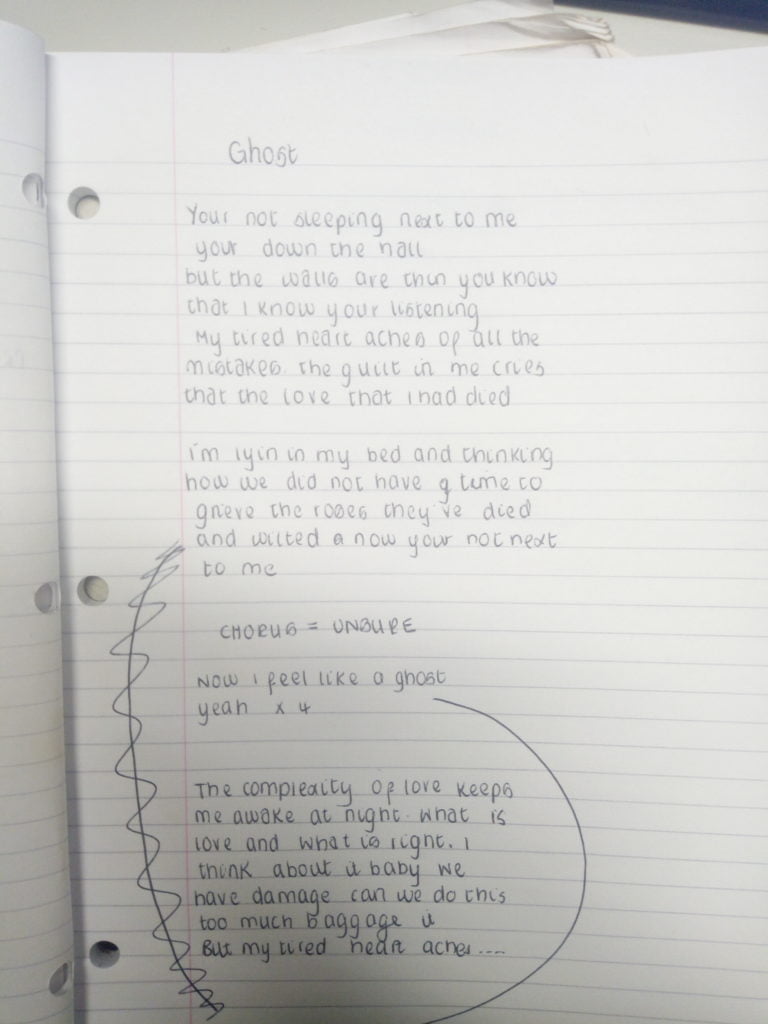 Ghost
Your not sleeping next to me
your down the hall
but the walls are thin you know
that I know your listening
My tired heart aches of all the
mistakes. the guilt in me cries
that the love that I had died
i'm lyin in my bed and thinking
how we did not have g time to
grieve the roses they've died
and wilted a now your not next
to me
CHORUS = UNSURE
Now I feel like a ghost
yeah x 4
The complexity of love keeps
me awake at night. what is
love and what is right. I
think about it baby we
have damage can we do this
too much baggage it
But my tired heart aches....